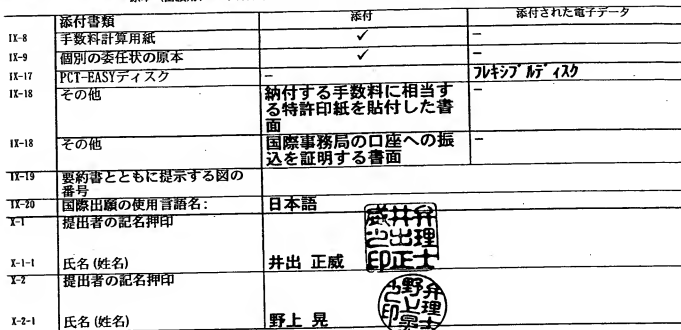 添付書類 添付 添付された電子データ
IX-8 手数料計算用紙 ✓ -
IX-9 個別の委任状の原本 ✓ -
IX-17 PCT-EASYディスク - フレキシブルディスク
IX-18 その他 納付する手数料に相当す -
る特許印紙を貼付した書
面
IX-18 その他 国際事務局の口座への振 -
込を証明する書面
IX-19 要約書とともに提示する図の
番号
IX-20 国際出願の使用言語名: 日本語
X-1 提出者の記名押印
弁理士
井出正
威之印
X-1-1 氏名(姓名) 井出 正威
X-2 提出者の記名押印
弁理士
野上晃
之印
X-2-1 氏名(姓名) 野上 晃